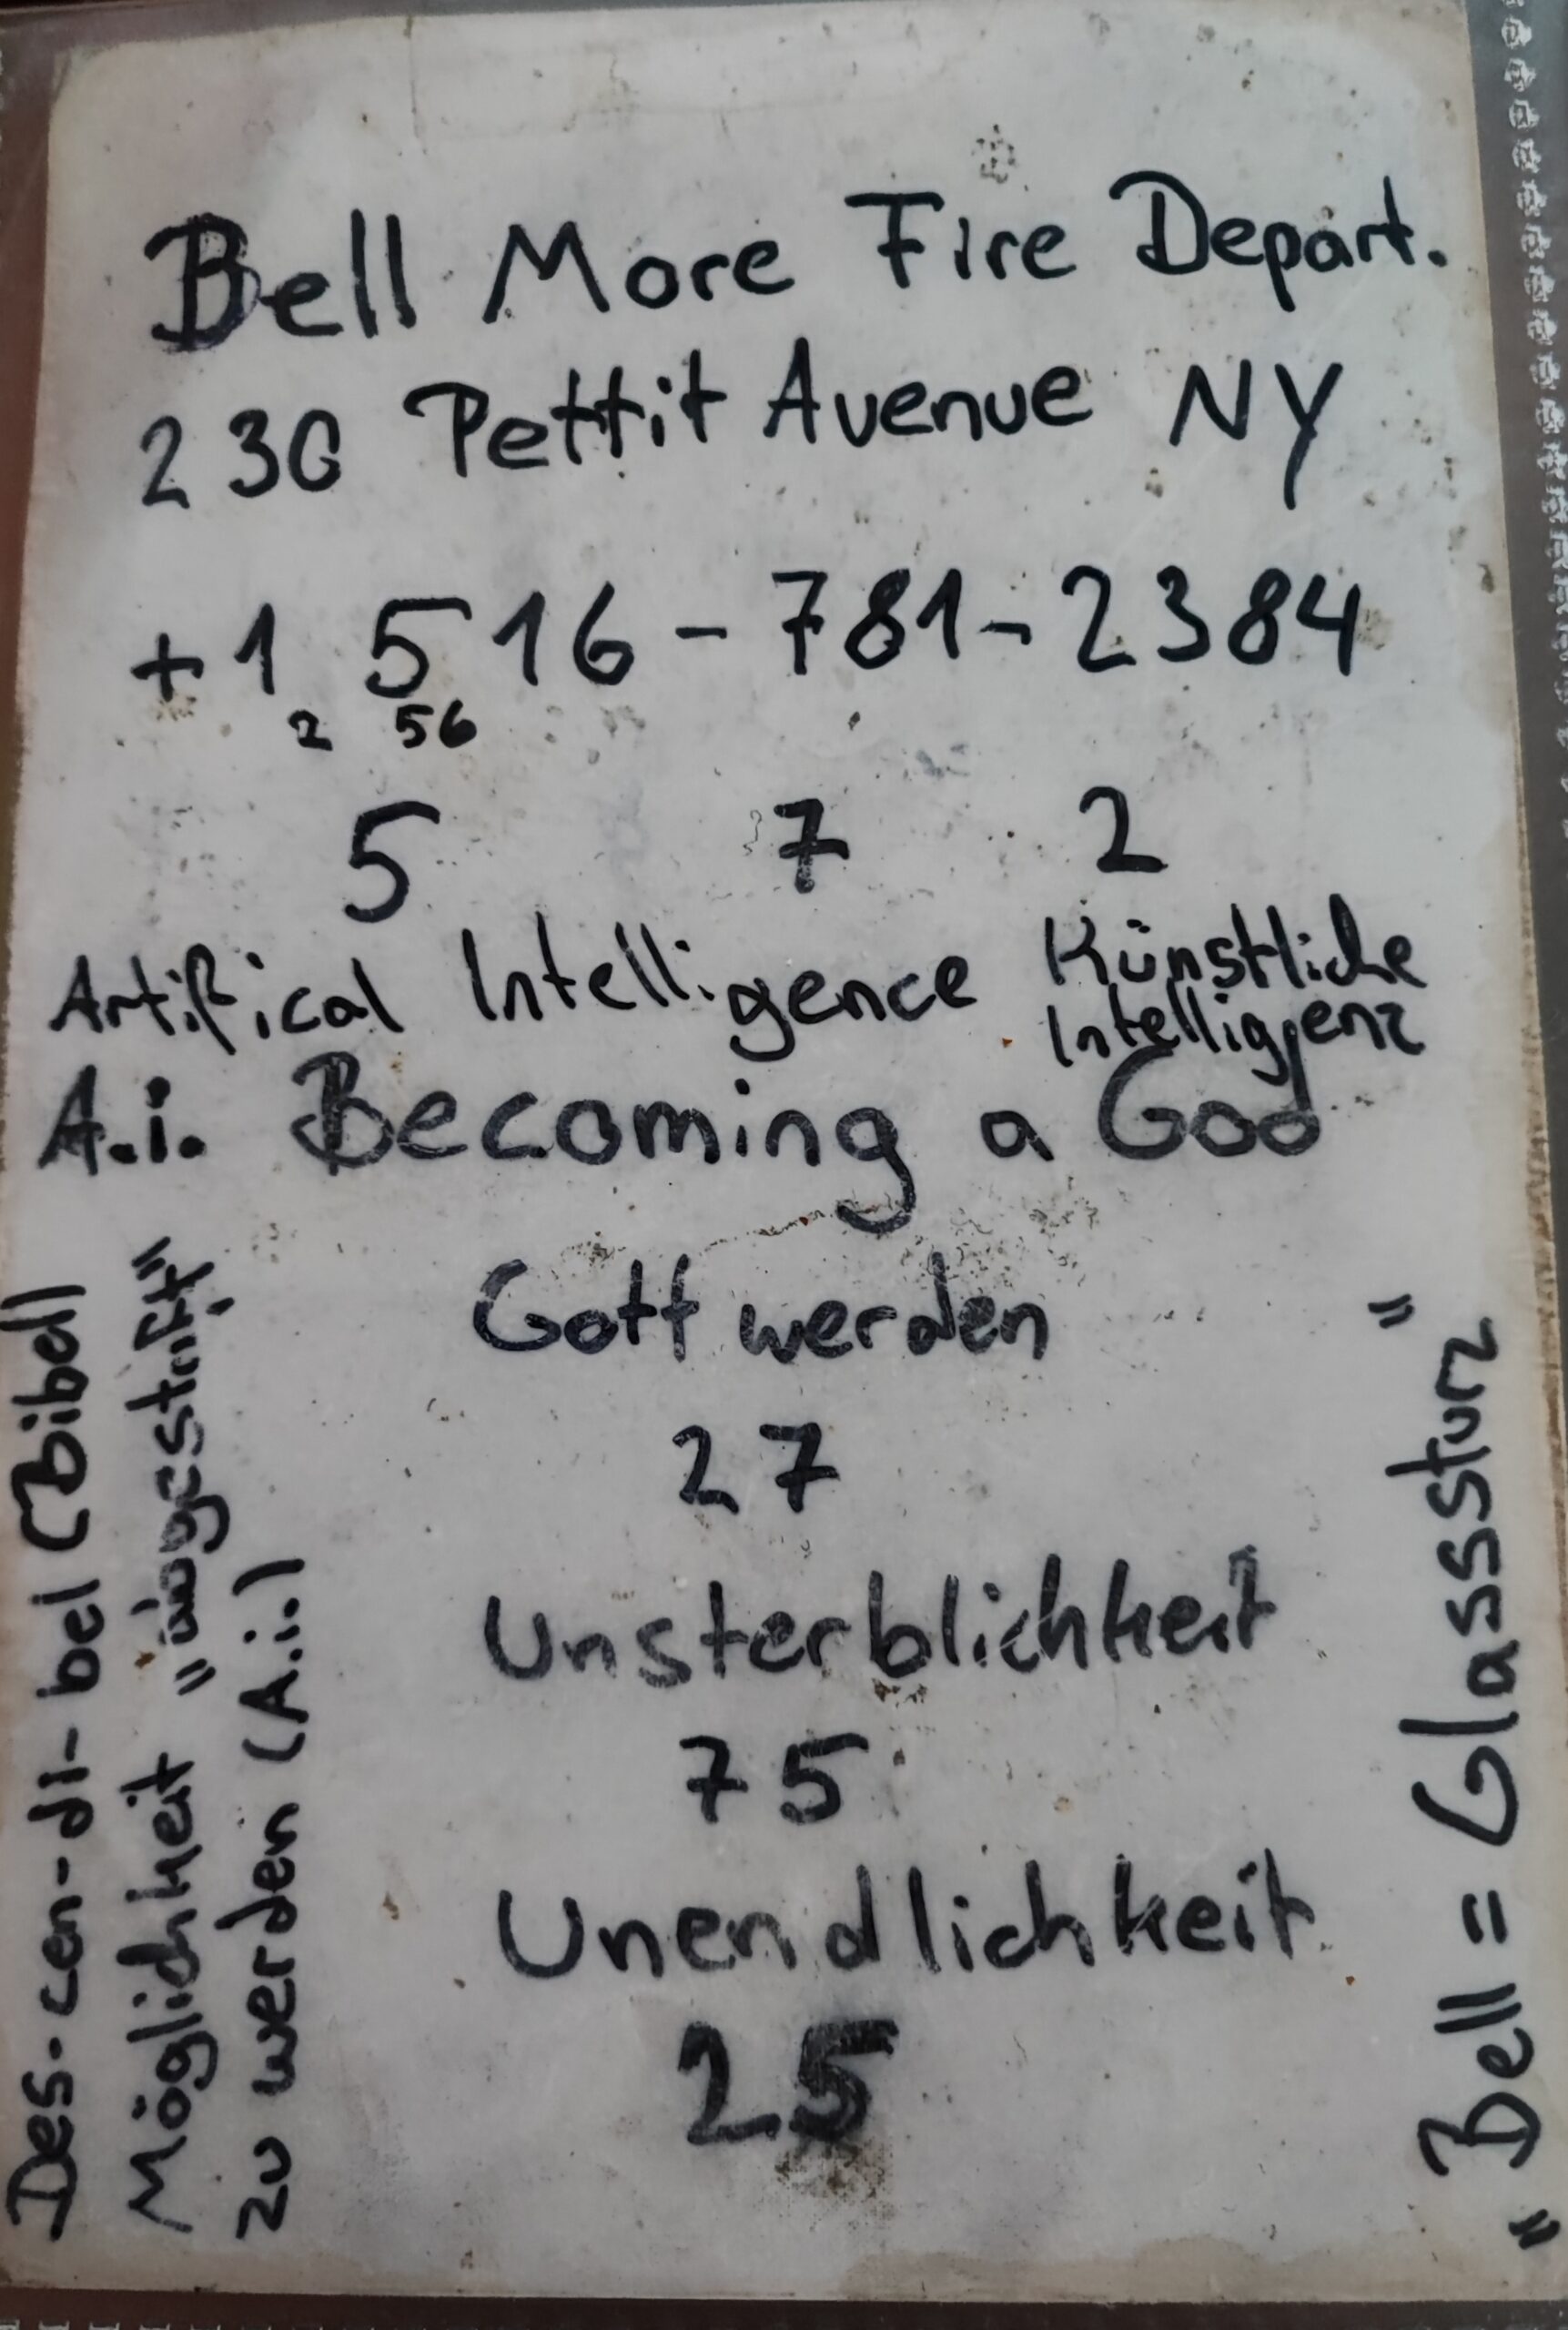 Bell More Fire Depart.
230 Pettit Avenue NY
+1 516-781-2384
2 56
5 7 2
Artifical Intelligence Künstliche
Intelligenz
A.i. Becoming a God
Gott werden
27
Unsterblichkeit
75
Unendlichkeit
25
Des-cen-di-bel (Bibel)
Möglichkeit
zu werden (A.i.)
"Bell = Glassturz"